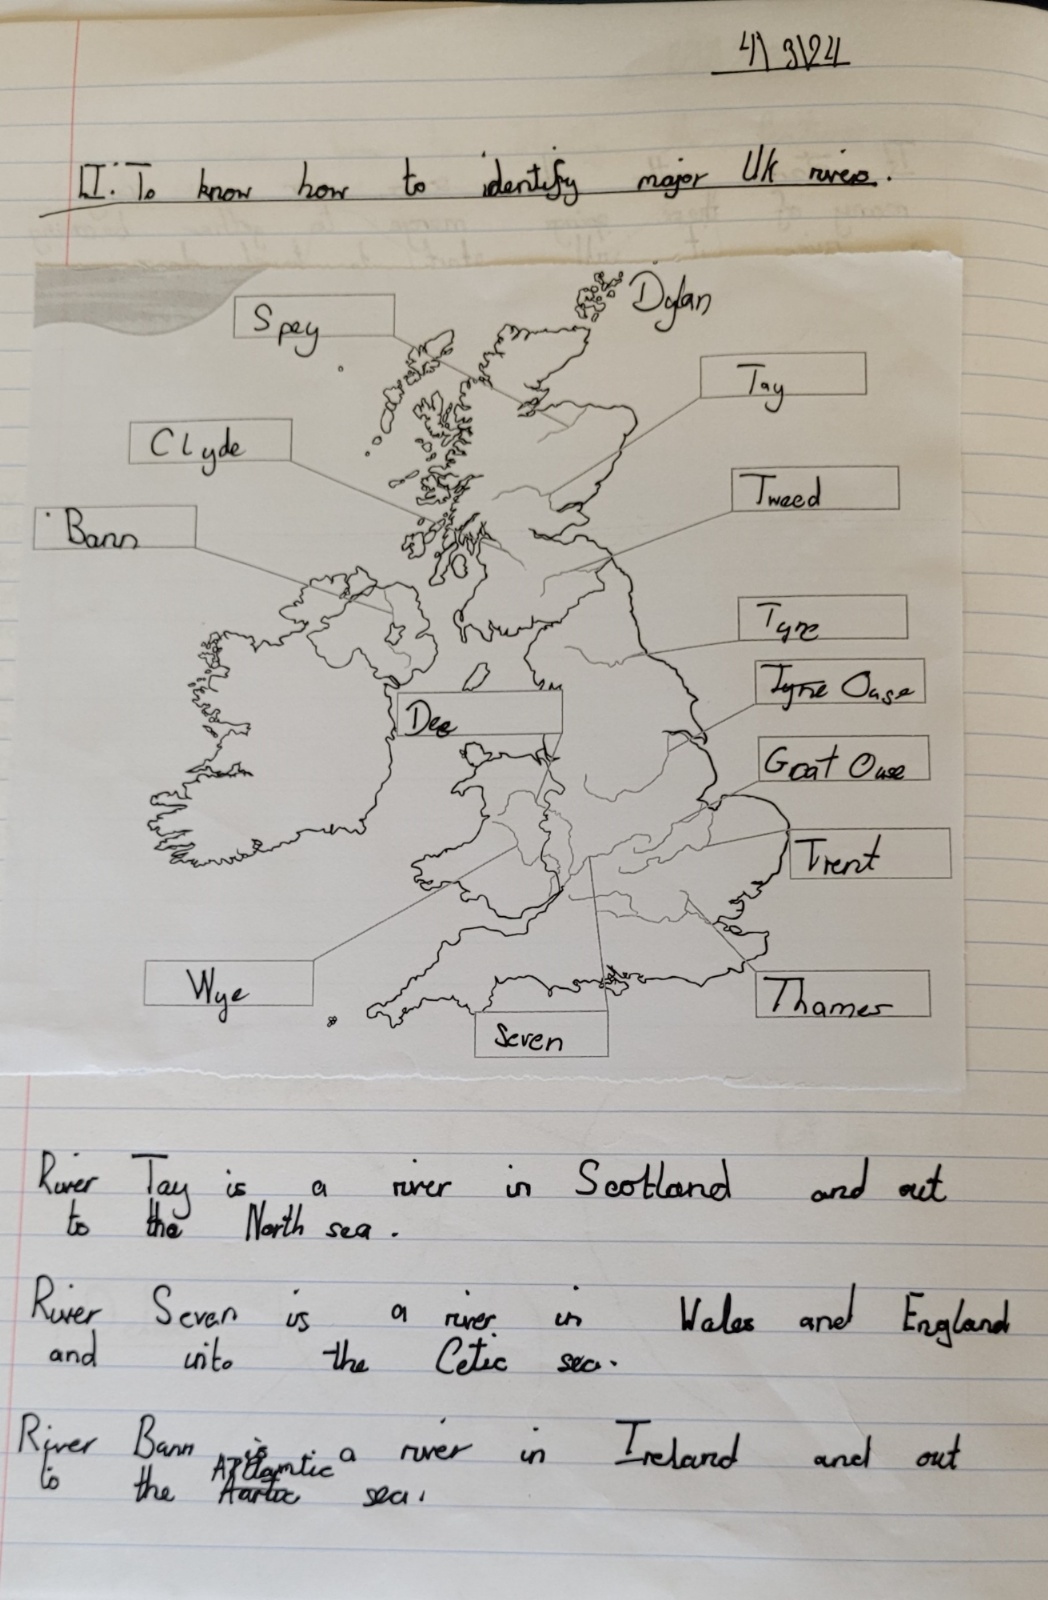 4/3/24
LI: To know how to identify major UK rivers.
Dylan
Spey
Tay
Clyde
Tweed
Bann
Tyne
Tyne Ouse
Dee
Goat Ouse
Trent
Wye
Thames
Seven
River Tay is a river in Scotland and out
to the North sea.
River Seven is a river in Wales and England
and into the Cetic sea.
River Bann is a river in Ireland and out
to the Atlantic sea.